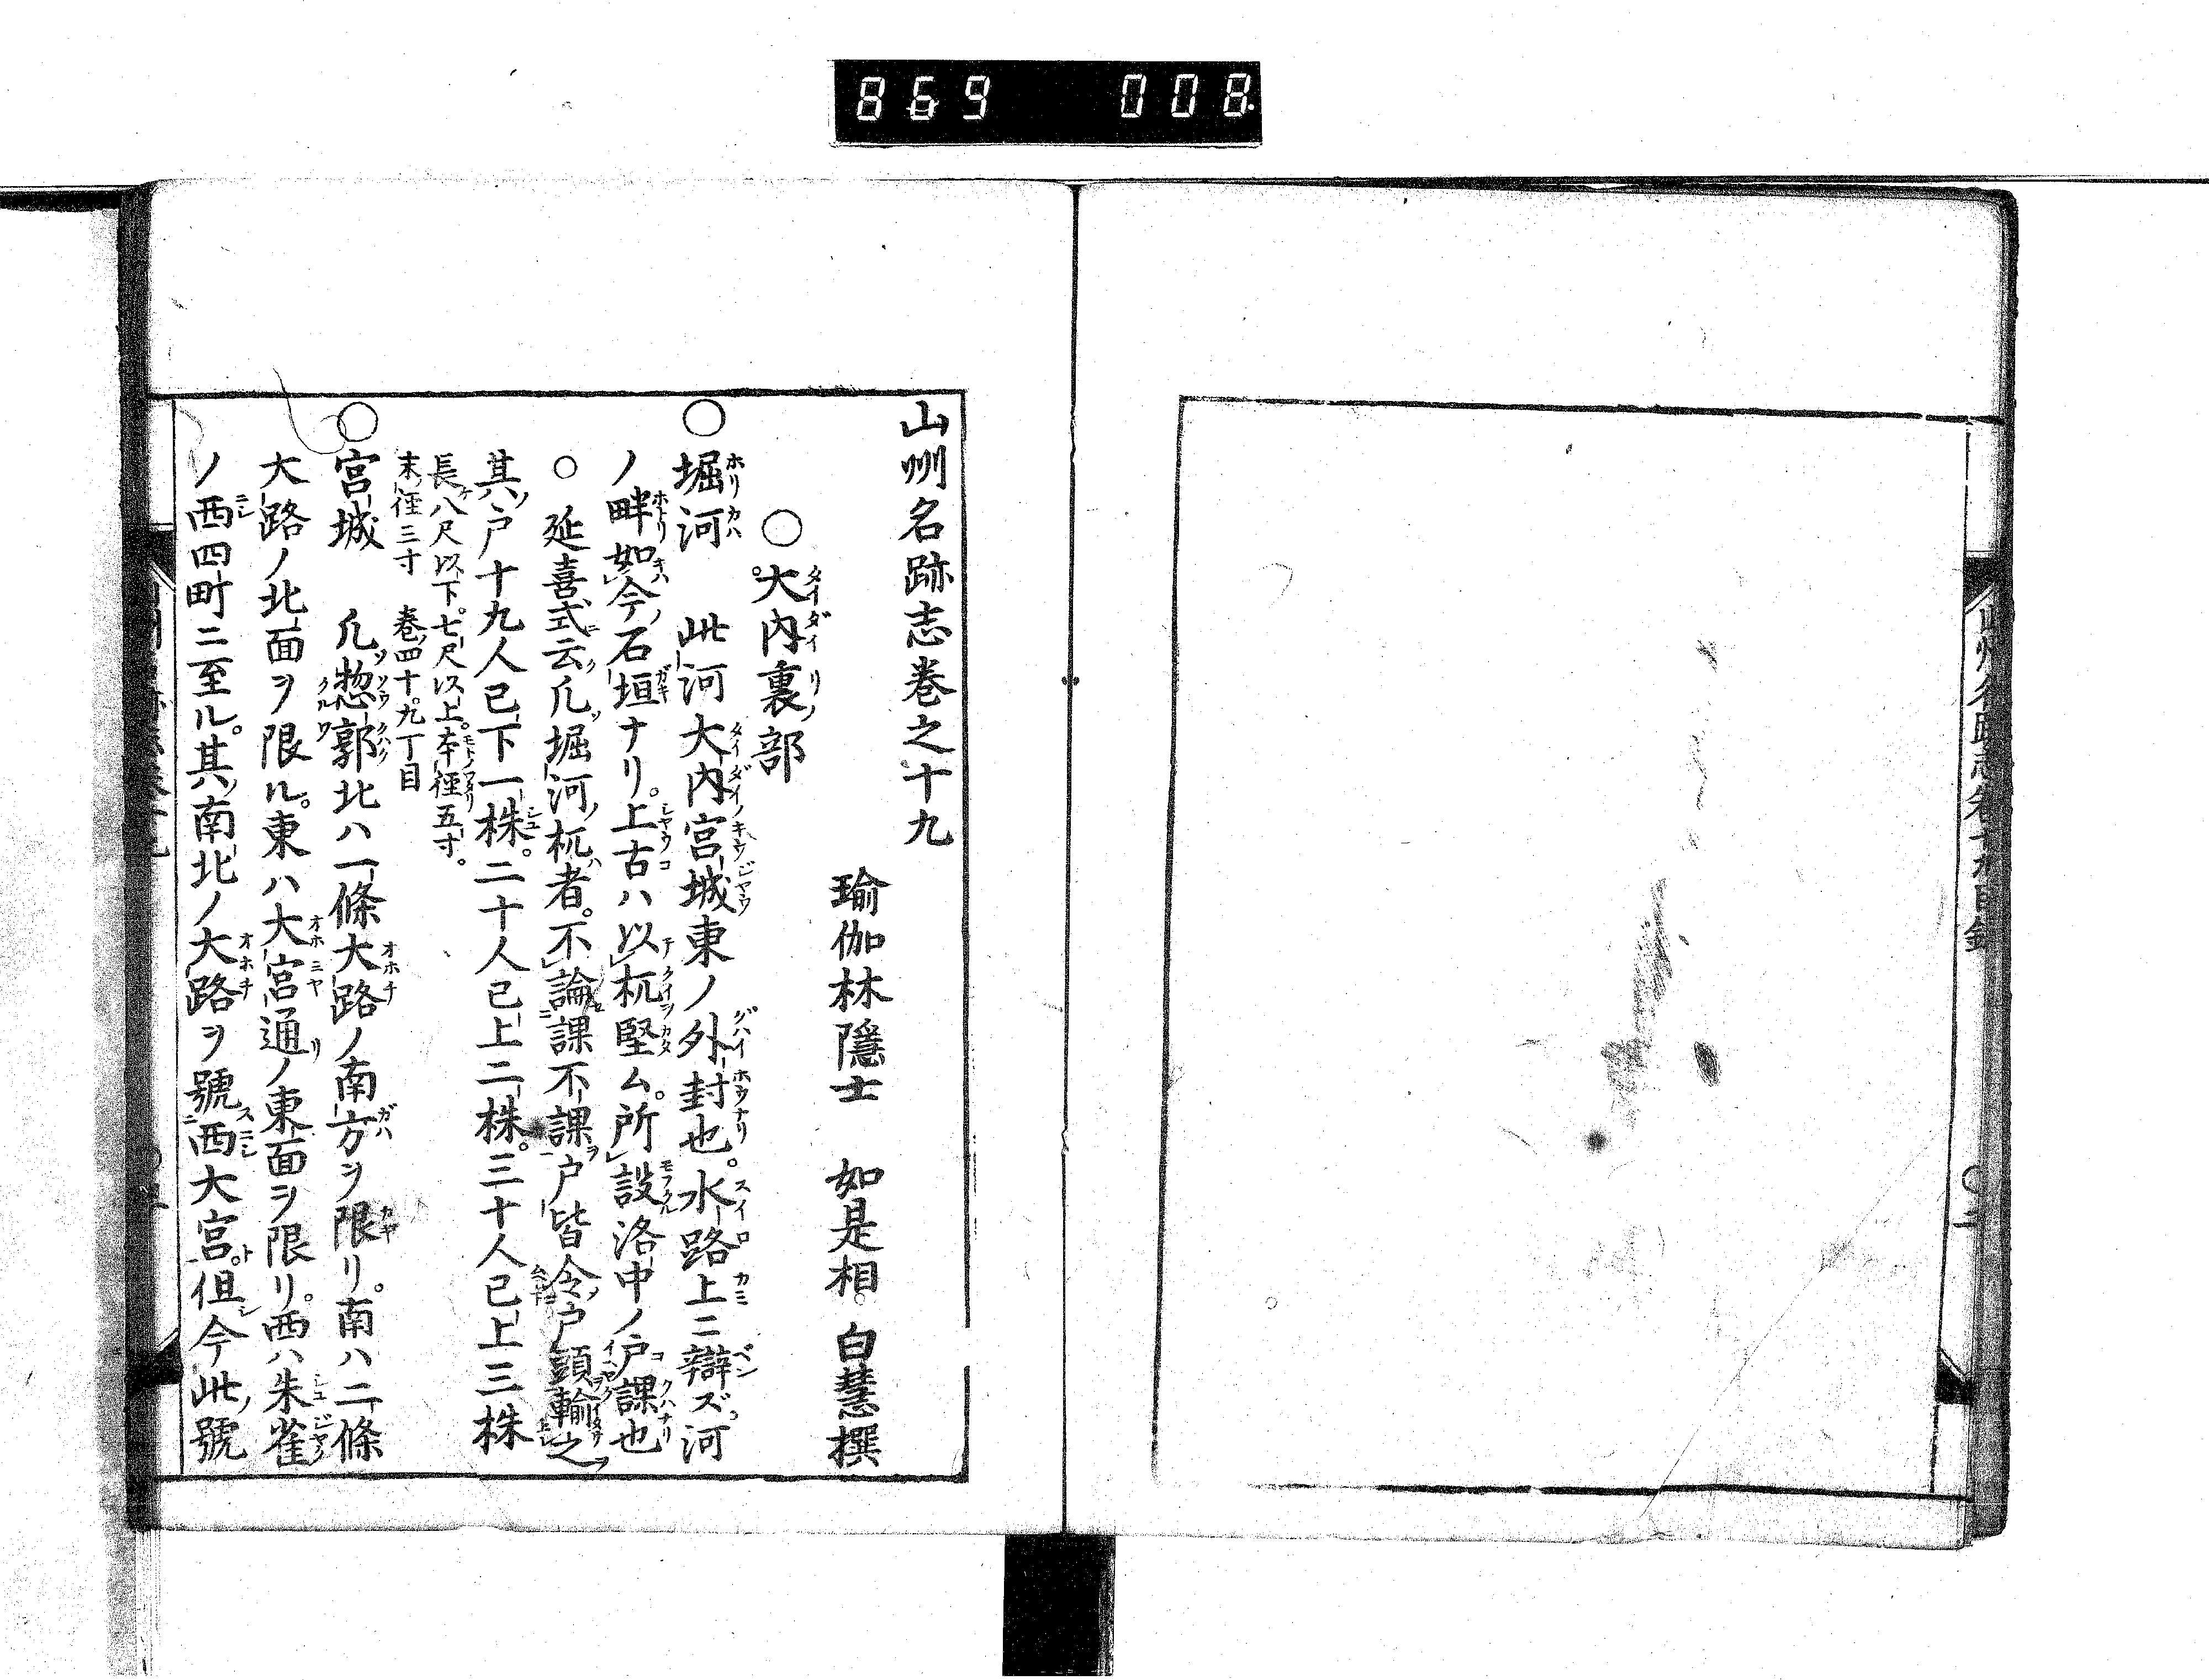 869 008
山州名跡志巻十九目録
〇二
山州名跡志巻之十九
瑜伽林隱士 如是相 白慧撰
○大内裏部
○堀河 此河大内宮城東ノ外封也。水路上ニ辯ズ河
ノ畔如今石垣ナリ。上古ハ以杭堅ム。所設洛中ノ戸課也
○延喜式云凡堀河杭者。不論課不課戸皆令戸頭輸之
其戸十九人已下一株。二十人已上二株。三十人已上三株
長八尺以下。七尺以上。本徑五寸。
末徑三寸 巻四十。九丁目
○宮城 凡惣郭北ハ一條大路ノ南方ヲ限リ。南ハ二條
大路ノ北面ヲ限ル。東ハ大宮通ノ東面ヲ限リ。西ハ朱雀
ノ西四町ニ至ル。其南北ノ大路ヲ號西大宮。但今此號